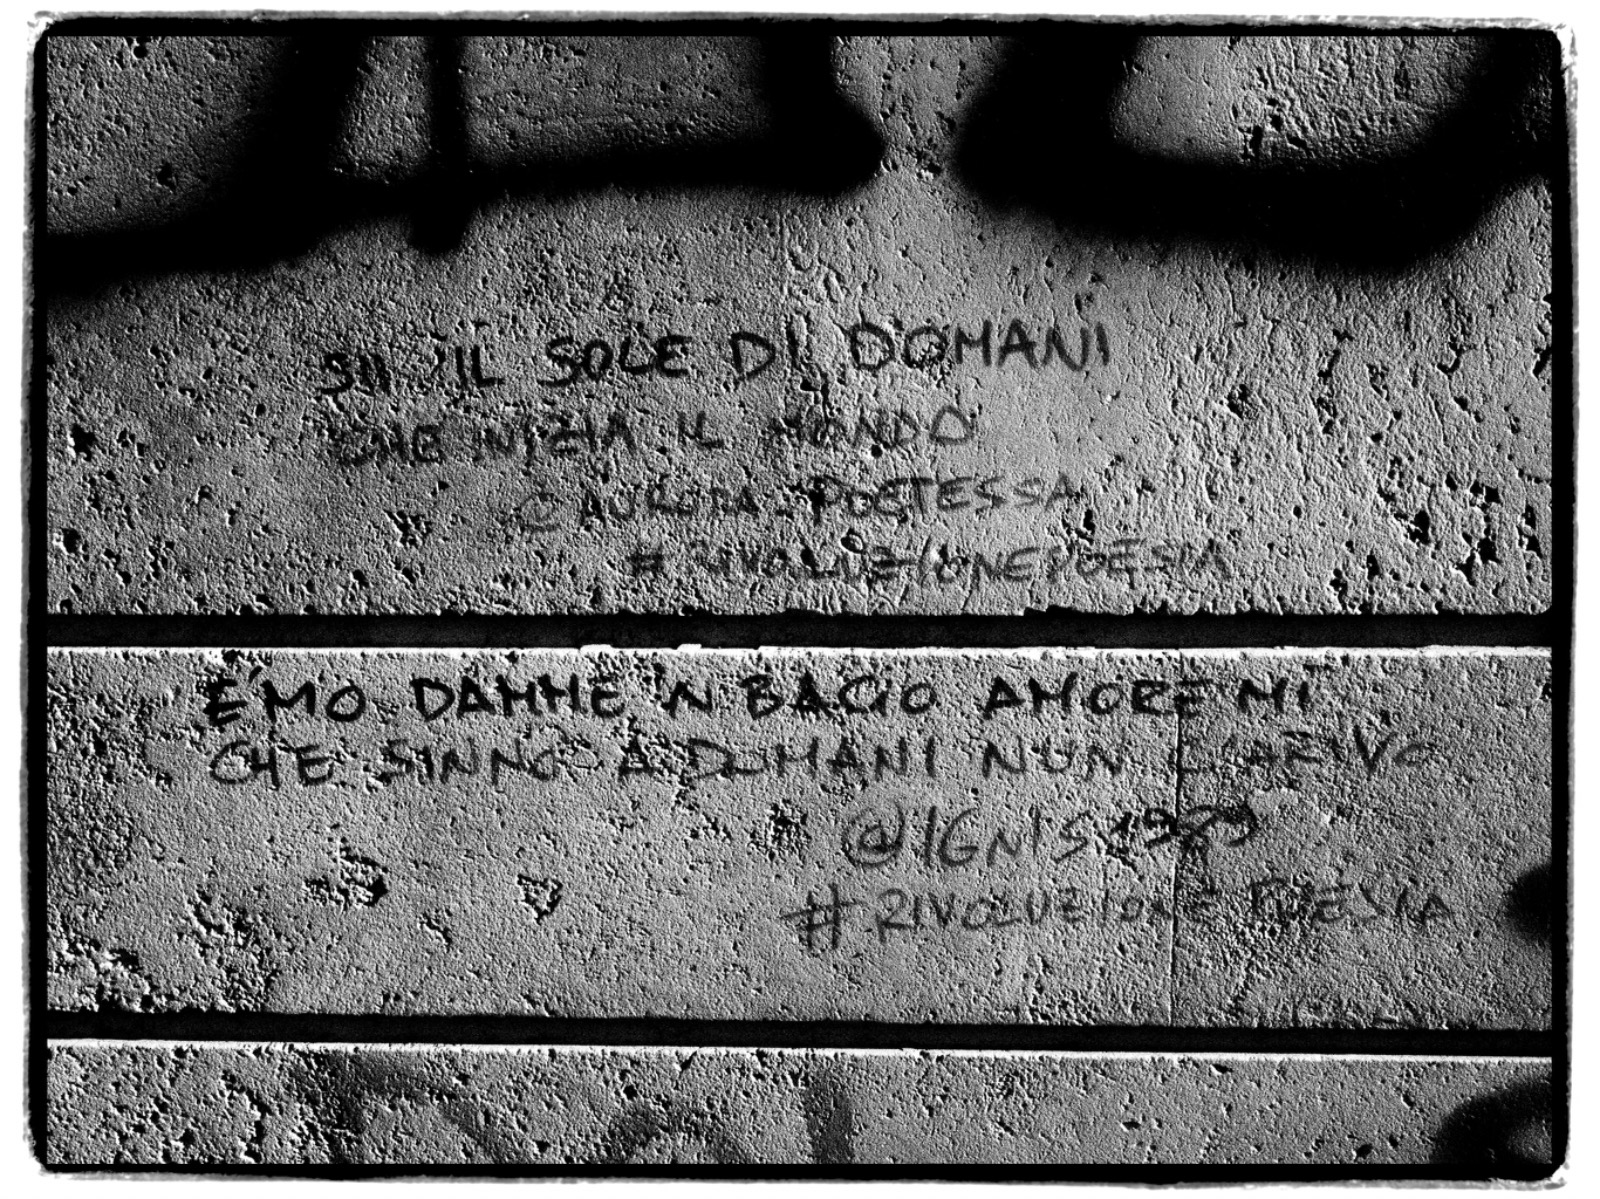 SII IL SOLE DI DOMANI
CHE INIZIA IL MONDO
@AURORA_POETESSA
#RIVOLUZIONEPOESIA
E' MO DAMME 'N BACIO AMORE MI
CHE SINNO A DOMANI NUN
@IGNIS1989
#RIVOLUZIONE POESIA